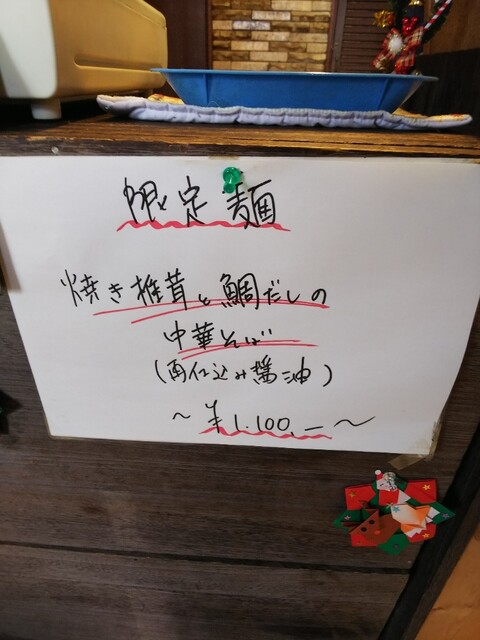 限定麺
焼き椎茸と鯛だしの
中華そば
(再仕込み醤油)
～¥1.100.-～